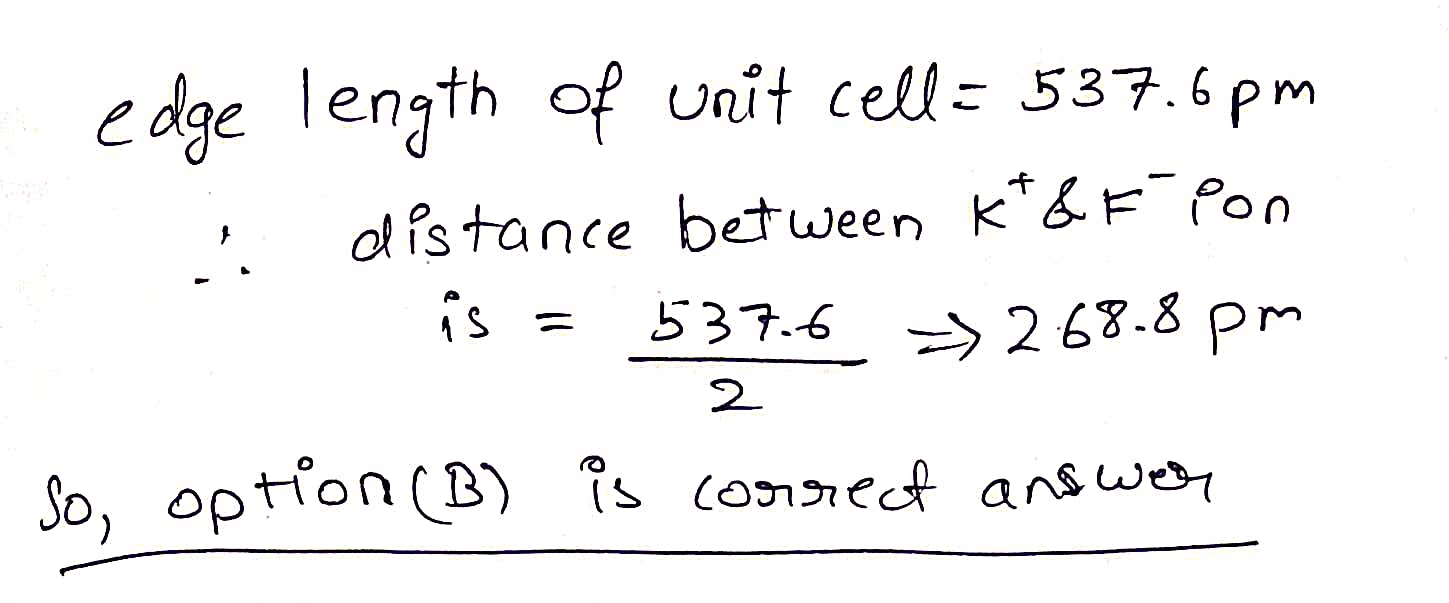 edge length of unit cell = 537.6 pm
∴ distance between K⁺ & F⁻ ion
is = 537.6 / 2 ⇒ 268.8 pm
So, option (B) is correct answer